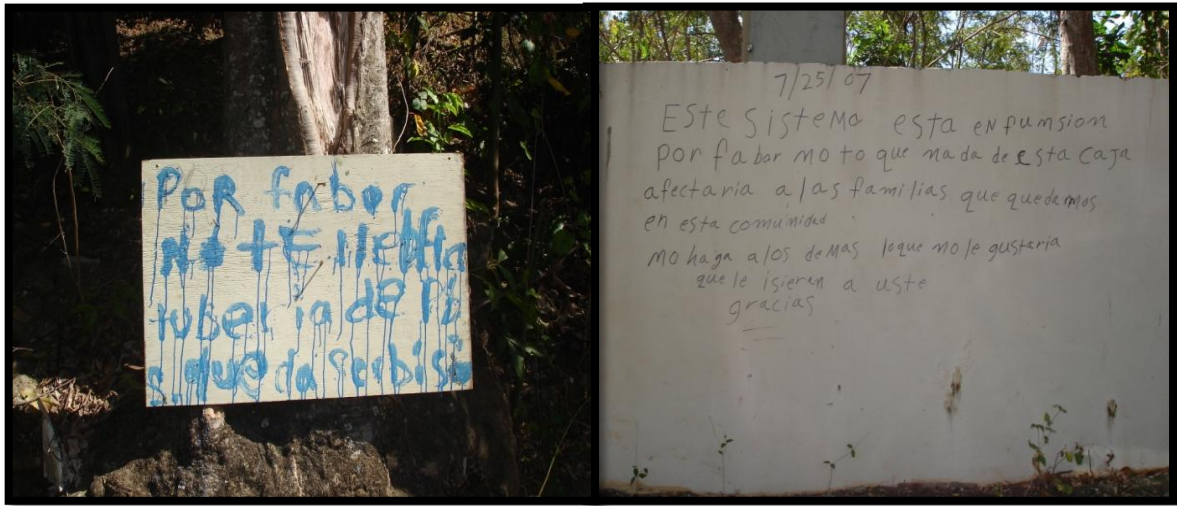 POR fabor
NO tE
tuberia de
que da serbisio
7/25/07
EStE SiSteMa esta eN funsion
Por fabor no toque nada de esta caja
afectaria a las familias que quedamos
en esta comunidad
no haga a los demas lo que no le gustaria
que le isieran a uste
gracias